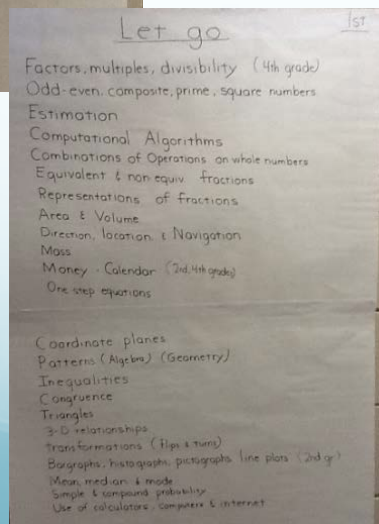 Let go
1st
Factors, multiples, divisibility (4th grade)
Odd-even, composite, prime, square numbers
Estimation
Computational Algorithms
Combinations of Operations on whole numbers
Equivalent & non equiv. fractions
Representations of fractions
Area & Volume
Direction, location, & Navigation
Mass
Money - Calendar (2nd, 4th grades)
One step equations
Coordinate planes
Patterns (Algebra) (Geometry)
Inequalities
Congruence
Triangles
3-D relationships
Transformations (flips & turns)
Bargraphs, histographs, pictographs, line plots (2nd gr)
Mean, median & mode
Simple & compound probability
Use of calculators, computers & internet